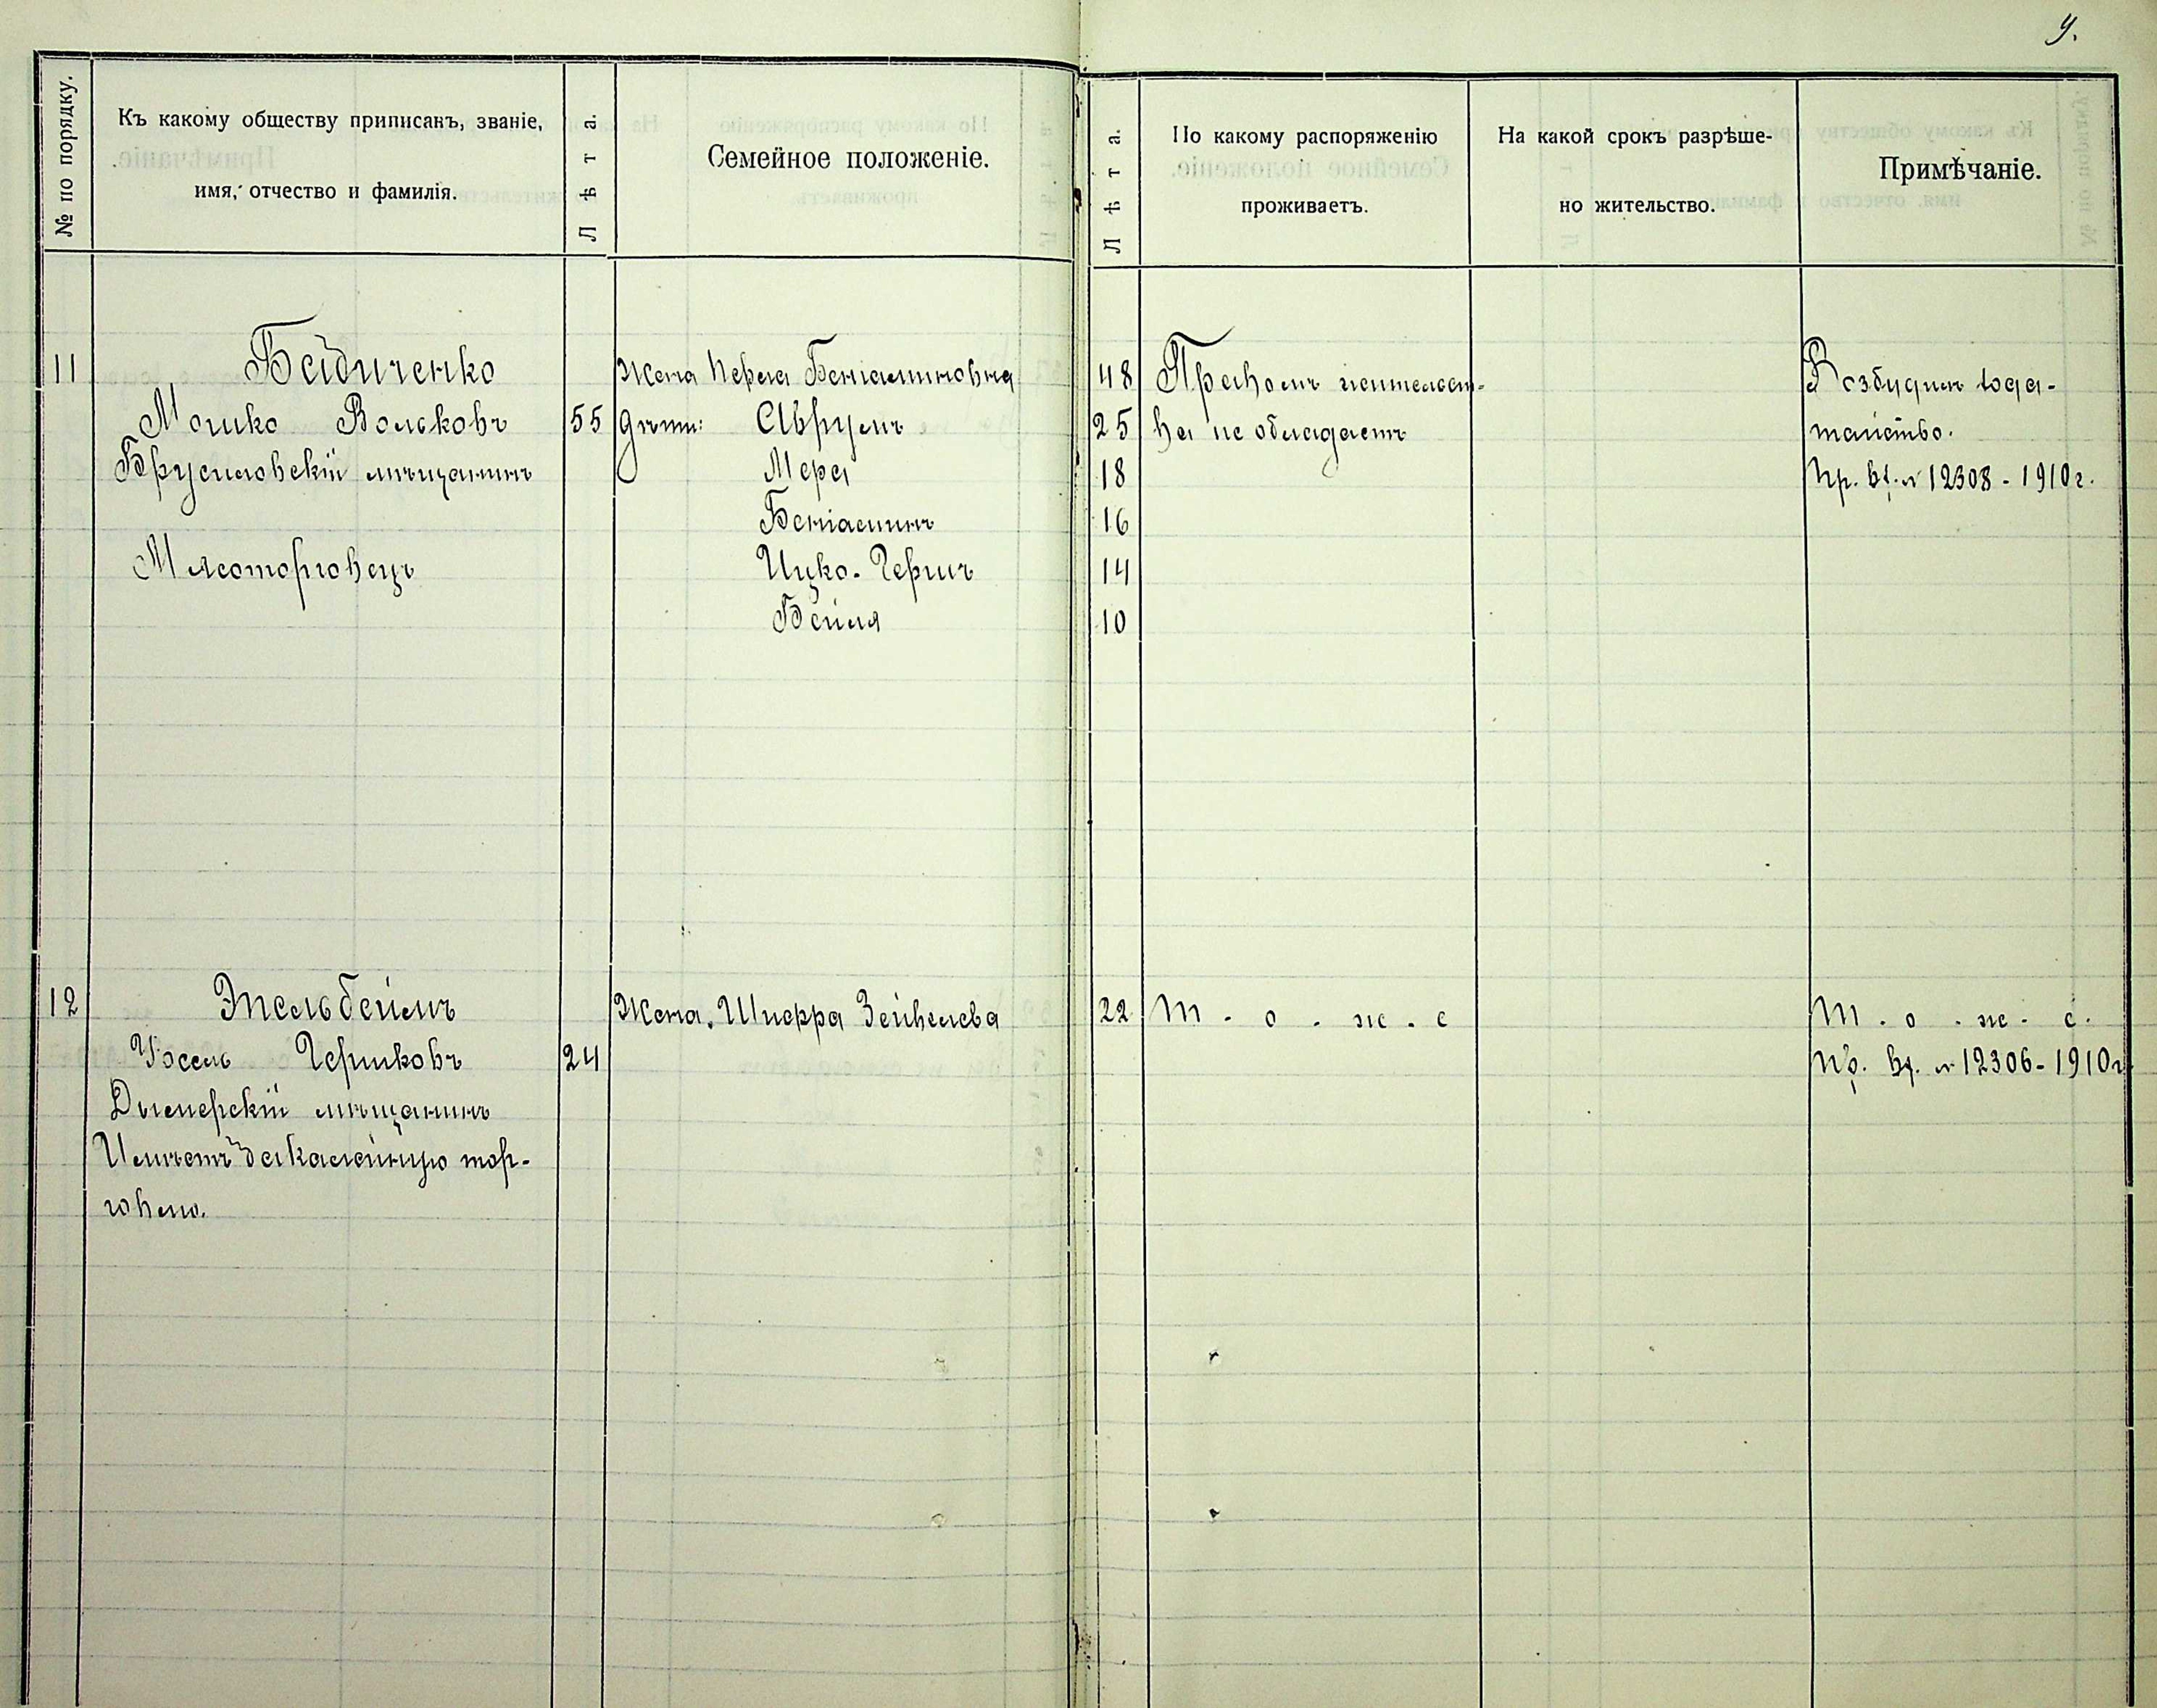 9.
№ по порядку.
Къ какому обществу приписанъ, званіе,
имя, отчество и фамилія.
Лѣта.
Семейное положеніе.
Лѣта.
По какому распоряженію
проживаетъ.
На какой срокъ разрѣше-
но жительство.
Примѣчаніе.
11
Байдиченко
Мошко Вольковъ 55
Брусиловскій мѣщанинъ
Мясоторговецъ
Жена Перла Беніаминовна 48
Дѣти: Аврумъ 25
Мера 18
Беніаминъ 16
Ицко-Гершъ 14
Бейля 10
Правомъ жительст-
ва не обладаетъ
Возбудилъ хода-
тайство.
Пр. вх. № 12308 - 1910 г.
12
Эпельбеймъ
Іосель Гершковъ 24
Дымерскій мѣщанинъ
Имѣетъ бакалейную тор-
говлю.
Жена. Шифра Зейвелева 22
т. о. ж. е
т. о. ж. е.
Пр. вх. № 12306 - 1910 г.